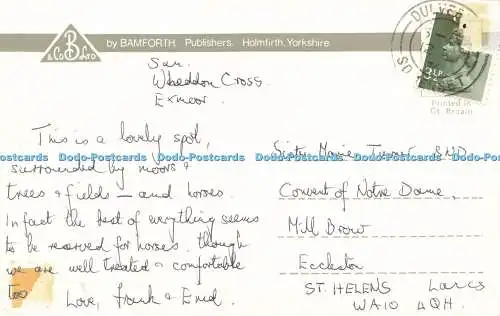 B
& Co LTD
by BAMFORTH Publishers, Holmfirth, Yorkshire
DULVER
Sun.
Wheddon Cross.
Exmoor.
3½P
Printed in
Gt. Britain
This is a lovely spot,
surrounded by moors &
trees & fields — and horses.
In fact the best of everything seems
to be reserved for horses, though
we are well treated & comfortable
too
Love, Frank & Enid.
Sister Marie
Convent of Notre Dame,
Mill Brow
Eccleston
ST. HELENS Lancs
WA10 4QH.
Dodo-Postcards Dodo-Postcards Dodo-Postcards Dodo-Postcards Dodo-Postcards